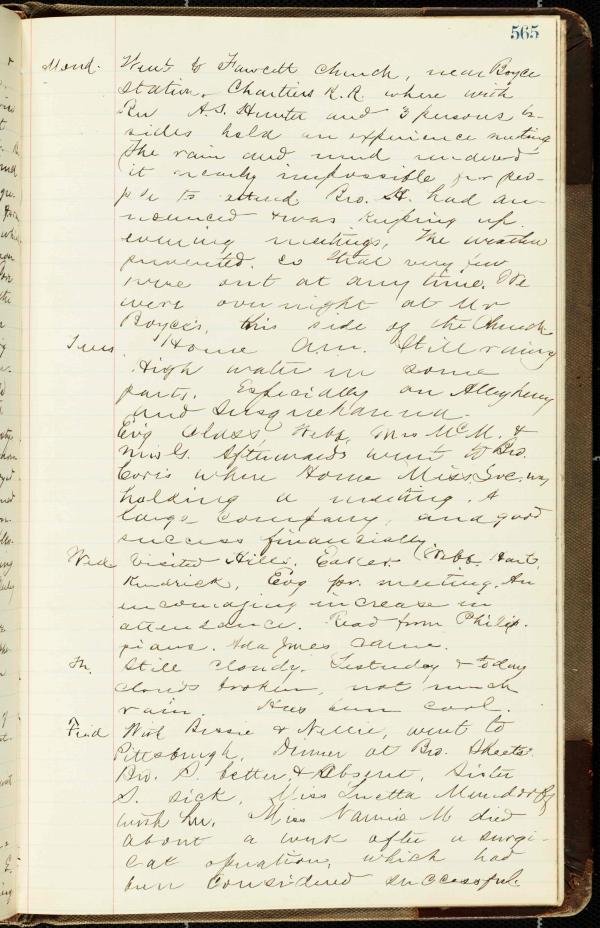 565
Mond. Went to Fawcett church, near Boyce
Station, Chartiers R.R. where with
Rev A.S. Hunter and 3 persons be-
sides held an experience meeting
The rain and mud rendered
it nearly impossible for peo-
ple to attend Bro. H. had an-
nounced & was keeping up
evening meetings. The weather
prevented. so that very few
were out at any time. We
were over night at Mr
Boyce's, this side of the Church
Tues. Home A.M. Still rainy
High water in some
parts. Especially on Allegheny
and Susquehanna.
Ev'g Class, Webb, Mrs McM. &
Mrs G. Afterwards went to Bro.
where Home Miss. Soc. was
holding a meeting. A
large company, and good
success financially.
Wed Visited Hills, Eaker, Webb, Hart,
Kendrick, Ev'g pr. meeting. An
encouraging increase in
attendance. Read from Philip-
pians. Ada Jones came.
Th. Still cloudy. Yesterday & today
clouds broken, not much
rain. cool.
Frid With Bessie & Nellie, went to
Pittsburgh. Dinner at Bro. Sheets
Bro. S. better, & absent, Sister
S. sick, Miss Luetta Mundorff
with her. Miss Nannie M died
about a week after a surgi-
cal operation, which had
been considered successful.